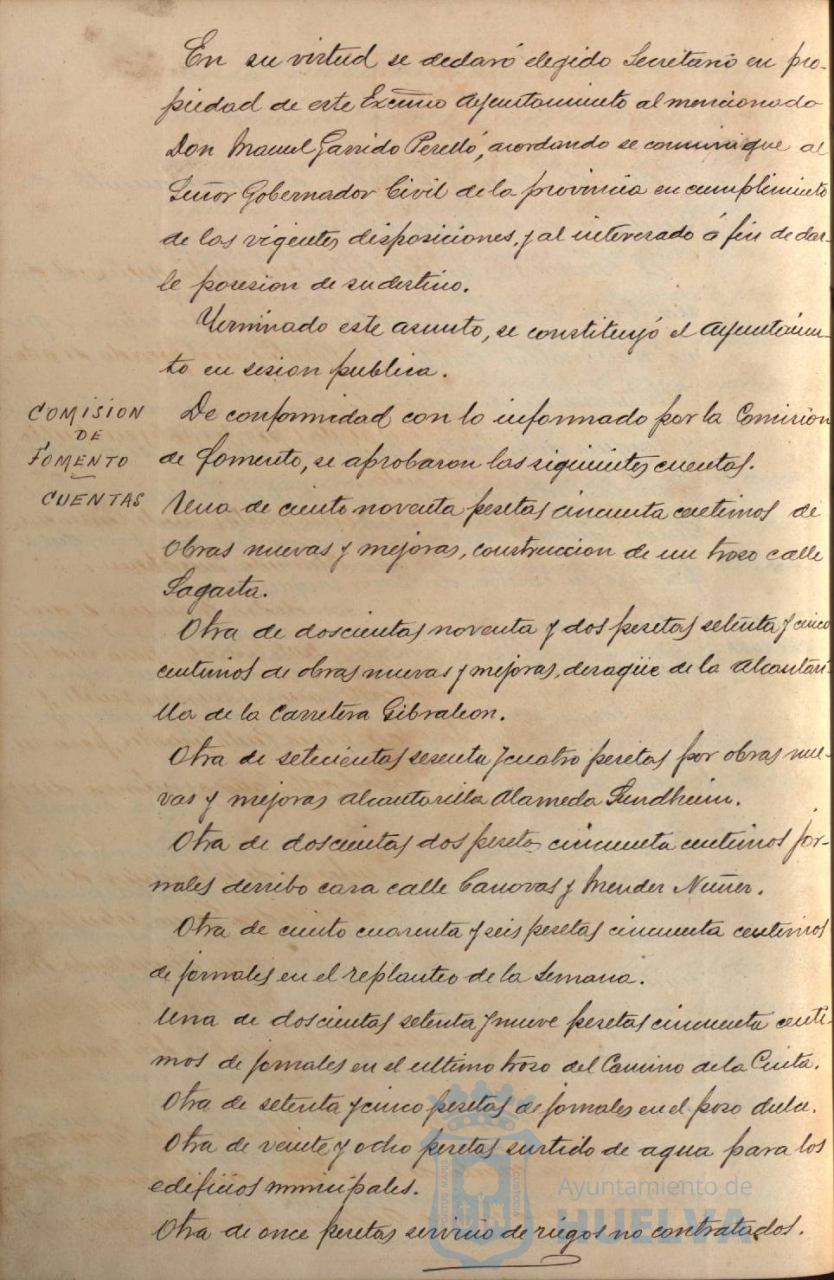 En su virtud se declaró elegido Secretario en pro-
piedad de este Excmo Ayuntamiento al mencionado
Don Manuel Garrido Perelló, acordando se comunique al
Señor Gobernador Civil de la provincia en cumplimiento
de las vigentes disposiciones, y al interesado á fin de dar-
le posesion de su destino.
Terminado este asunto, se constituyó el Ayuntamien-
to en sesion publica.
COMISION
DE
FOMENTO
CUENTAS
De conformidad con lo informado por la Comision
de fomento, se aprobaron las siguientes cuentas.
Una de ciento noventa pesetas cincuenta centimos de
obras nuevas y mejoras, construccion de un trozo calle
Sagasta.
Otra de doscientas noventa y dos pesetas setenta y cinco
centimos de obras nuevas y mejoras, desagüe de la Alcantari-
lla de la Carretera Gibraleon.
Otra de setecientas sesenta y cuatro pesetas por obras nue-
vas y mejoras alcantarilla Alameda Sundheim.
Otra de doscientas dos pesetas cincuenta centimos jor-
nales derribo casa calle Canovas y Mendez Nuñez.
Otra de ciento cuarenta y seis pesetas cincuenta centimos
de jornales en el replanteo de la Semana.
Una de doscientas setenta y nueve pesetas cincuenta centi-
mos de jornales en el ultimo trozo del Camino de la Cinta.
Otra de setenta y cinco pesetas de jornales en el pozo dulce.
Otra de veinte y ocho pesetas surtido de agua para los
edificios municipales.
Otra de once pesetas servicio de riegos no contratados.
Ayuntamiento de
HUELVA